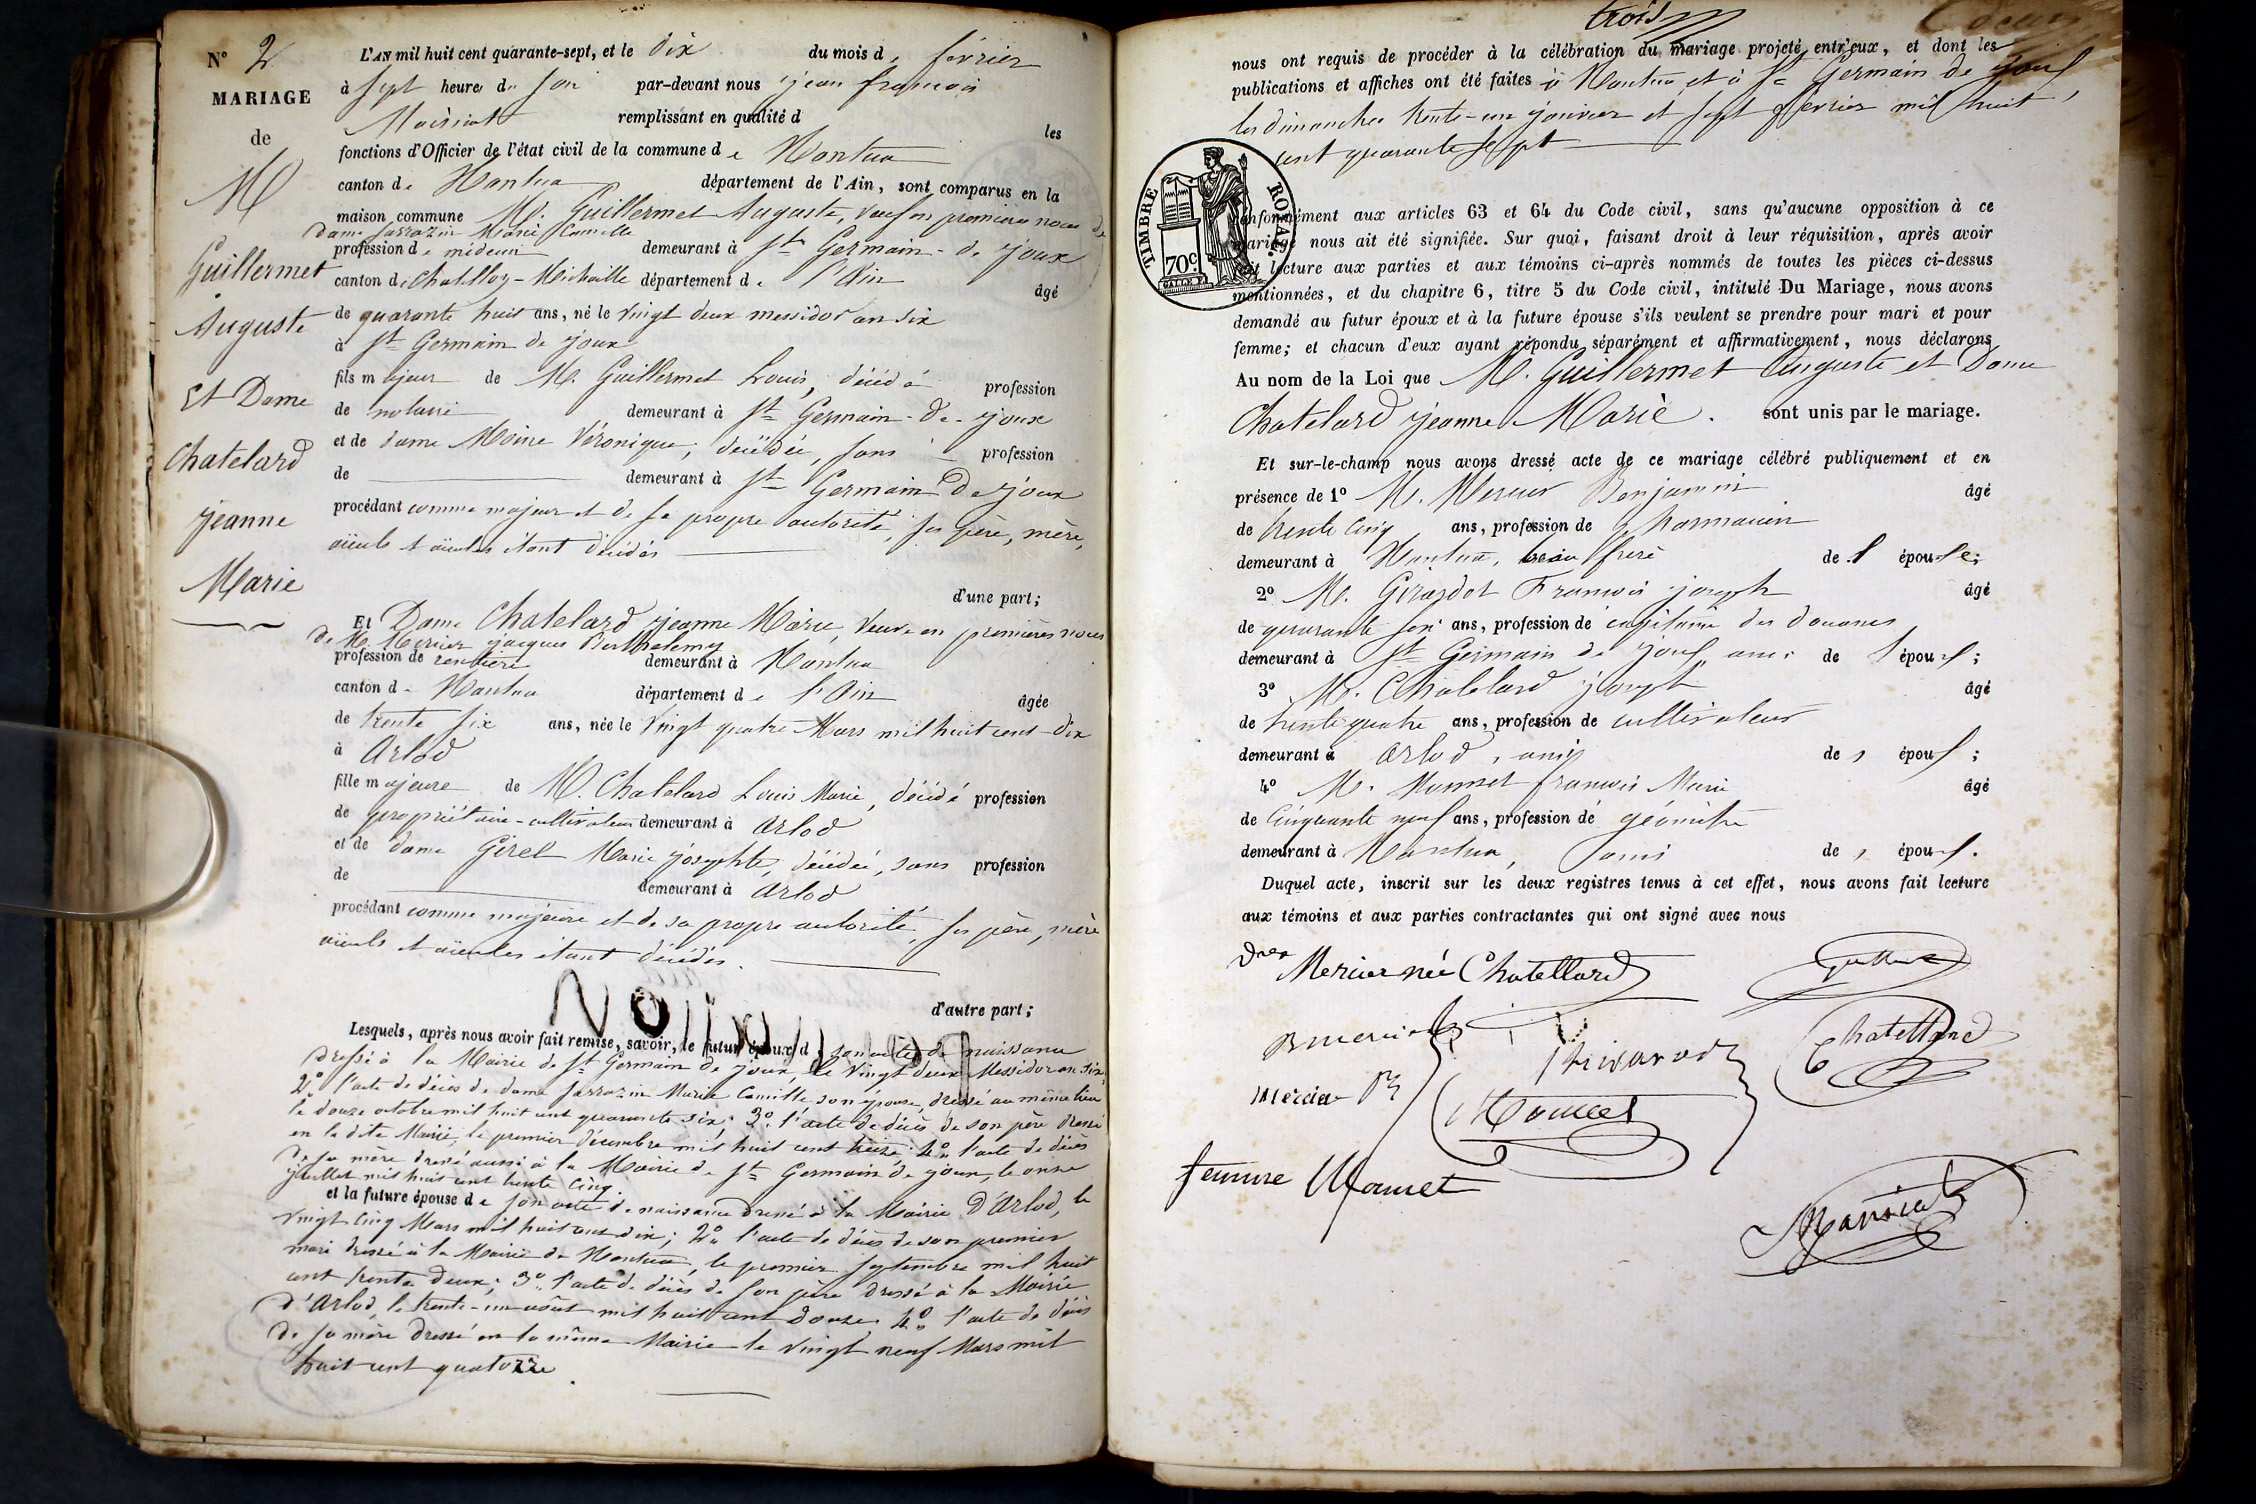 N° 2
MARIAGE
de
M
Guillermet
Auguste
Et Dame
Chatelard
jeanne
Marie
L'AN mil huit cent quarante-sept, et le dix du mois de février
à sept heures du soir par-devant nous jean françois
remplissant en qualité d les
fonctions d'Officier de l'état civil de la commune de Nantua
canton de Nantua département de l'Ain, sont comparus en la
maison commune M. Guillermet Auguste, veuf en premières noces de
Dame Sarrazin Marie Camille
profession de médecin demeurant à St Germain-de-joux
canton de Chatillon-Michaille département de l'Ain âgé
de quarante huit ans, né le vingt deux messidor an six
à St Germain de joux
fils majeur de M. Guillermet Louis, décédé profession
de notaire demeurant à St Germain-de-joux
et de dame Moine Véronique, décédée, sans profession
de demeurant à St Germain de joux
procédant comme majeur et de sa propre autorité, ses père, mère,
aïeuls et aïeules étant décédés
d'une part;
Et Dame Chatelard jeanne Marie, Veuve en premières noces
de M. Mercier jacques Barthelemy
profession de rentière demeurant à Nantua
canton de Nantua département de l'Ain âgée
de trente six ans, née le vingt quatre Mars mil huit cent dix
à Arlod
fille majeure de M. Chatelard Louis Marie, décédé profession
de propriétaire-cultivateur demeurant à Arlod
et de dame Girel Marie josephte, décédée, sans profession
de demeurant à Arlod
procédant comme majeure et de sa propre autorité, ses père, mère
aïeuls et aïeules étant décédés.
d'autre part;
Lesquels, après nous avoir fait remise, savoir, le futur époux d son acte de naissance
dressé à la Mairie de St Germain de joux, le vingt deux Messidor an six,
2° l'acte de décès de dame Sarrazin Marie Camille son épouse, dressé au même lieu
le douze octobre mil huit cent quarante six; 3° l'acte de décès de son père dressé
en la dite Mairie, le premier décembre mil huit cent treize; 4° l'acte de décès
de sa mère dressé aussi à la Mairie de St Germain de joux, le onze
juillet mil huit cent trente cinq.
et la future épouse de son acte de naissance dressé à la Mairie d'Arlod, le
vingt cinq Mars mil huit cent dix; 2° l'acte de décès de son premier
mari dressé à la Mairie de Nantua, le premier septembre mil huit
cent trente deux; 3° l'acte de décès de son père dressé à la Mairie
d'Arlod, le trente-un août mil huit cent douze. 4° l'acte de décès
de sa mère dressé en la même Mairie le vingt neuf Mars mil
huit cent quatorze
trois
nous ont requis de procéder à la célébration du mariage projeté entr'eux, et dont les
publications et affiches ont été faites à Nantua et à St Germain de joux
les dimanches trente-un janvier et sept février mil huit
cent quarante sept
TIMBRE ROYAL
70c.
conformément aux articles 63 et 64 du Code civil, sans qu'aucune opposition à ce
mariage nous ait été signifiée. Sur quoi, faisant droit à leur réquisition, après avoir
fait lecture aux parties et aux témoins ci-après nommés de toutes les pièces ci-dessus
mentionnées, et du chapitre 6, titre 5 du Code civil, intitulé Du Mariage, nous avons
demandé au futur époux et à la future épouse s'ils veulent se prendre pour mari et pour
femme; et chacun d'eux ayant répondu séparément et affirmativement, nous déclarons
Au nom de la Loi que M. Guillermet Auguste et Dame
Chatelard jeanne Marie. sont unis par le mariage.
Et sur-le-champ nous avons dressé acte de ce mariage célébré publiquement et en
présence de 1° M. Mercier Benjamin âgé
de trente cinq ans, profession de Pharmacien
demeurant à Nantua, beau frère de l'épouse;
2° M. Girardot François joseph âgé
de quarante six ans, profession de capitaine des douanes
demeurant à St Germain de joux ami de l'époux;
3° M. Chatelard joseph âgé
de trente quatre ans, profession de cultivateur
demeurant à Arlod, ami des époux;
4° M. Mounet françois Marie âgé
de Cinquante neuf ans, profession de géomètre
demeurant à Nantua, ami des époux.
Duquel acte, inscrit sur les deux registres tenus à cet effet, nous avons fait lecture
aux témoins et aux parties contractantes qui ont signé avec nous
Mercier née Chatellard
Chatellard
Mercier
Mounet
femme Mounet